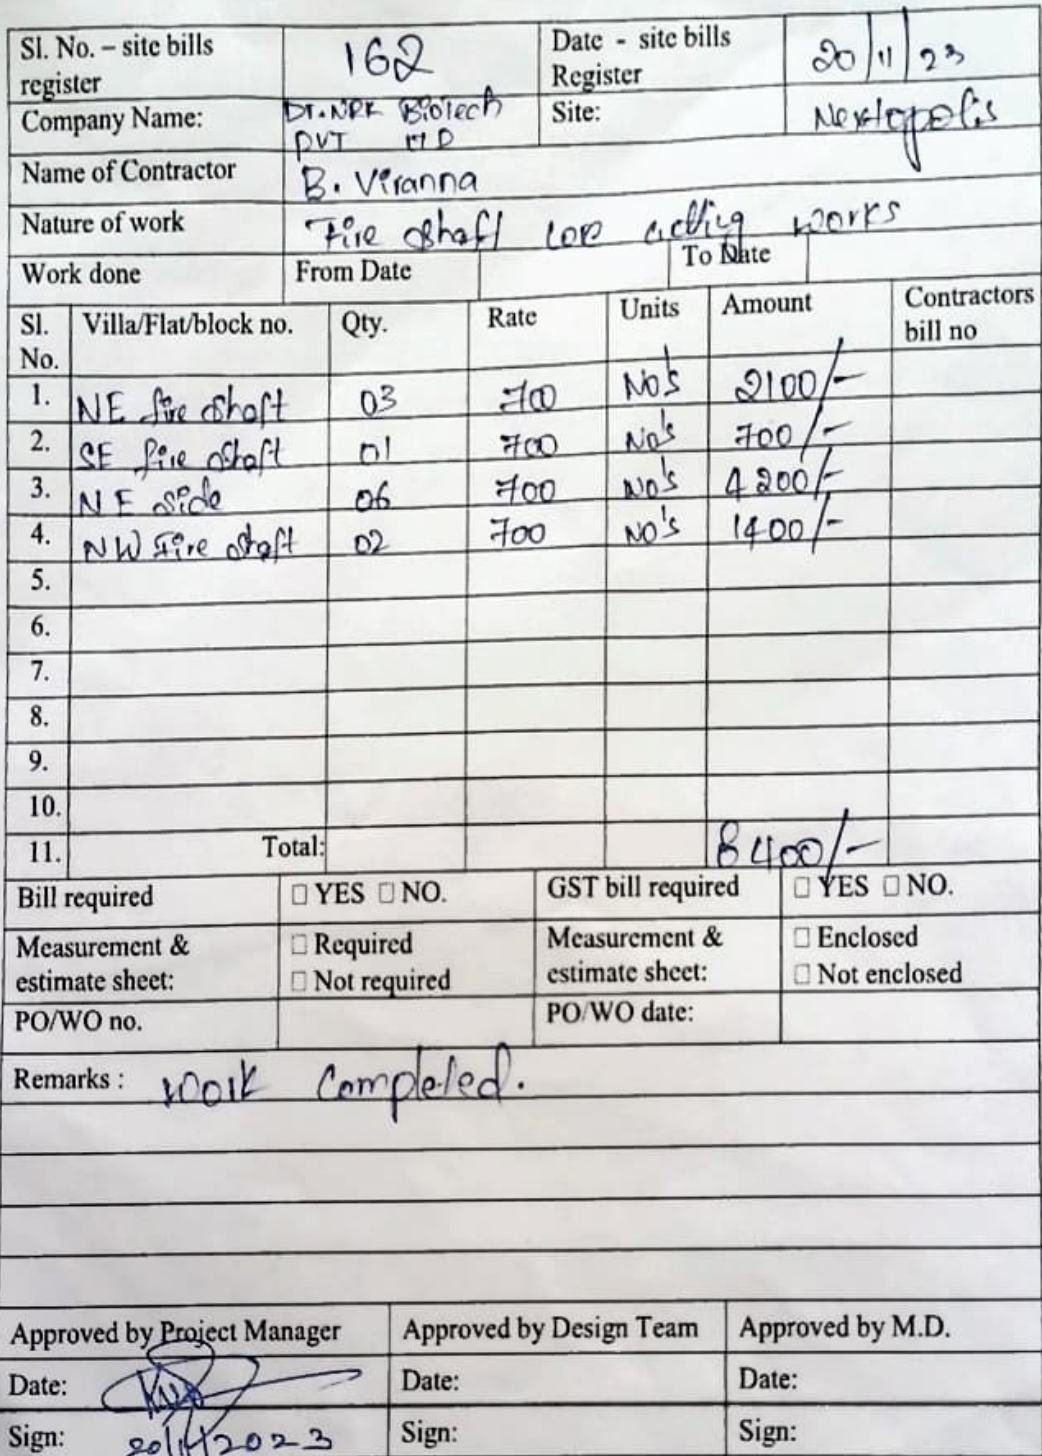 Sl. No. – site bills register 162 Date - site bills Register 20/11/23
Company Name: Dr. NRK Biotech PVT LTD Site: Nextopolis
Name of Contractor B. Viranna
Nature of work Fire shaft works
Work done From Date To Date
Sl. No. Villa/Flat/block no. Qty. Rate Units Amount Contractors bill no
1. NE fire shaft 03 700 No's 2100/-
2. SE fire shaft 01 700 No's 700/-
3. NE side 06 700 No's 4200/-
4. NW Fire shaft 02 700 No's 1400/-
5.
6.
7.
8.
9.
10.
11. Total: 8400/-
Bill required □ YES □ NO. GST bill required □ YES □ NO.
Measurement & estimate sheet: □ Required □ Not required Measurement & estimate sheet: □ Enclosed □ Not enclosed
PO/WO no. PO/WO date:
Remarks : work completed.
Approved by Project Manager Approved by Design Team Approved by M.D.
Date: Date: Date:
Sign: 20/11/2023 Sign: Sign: